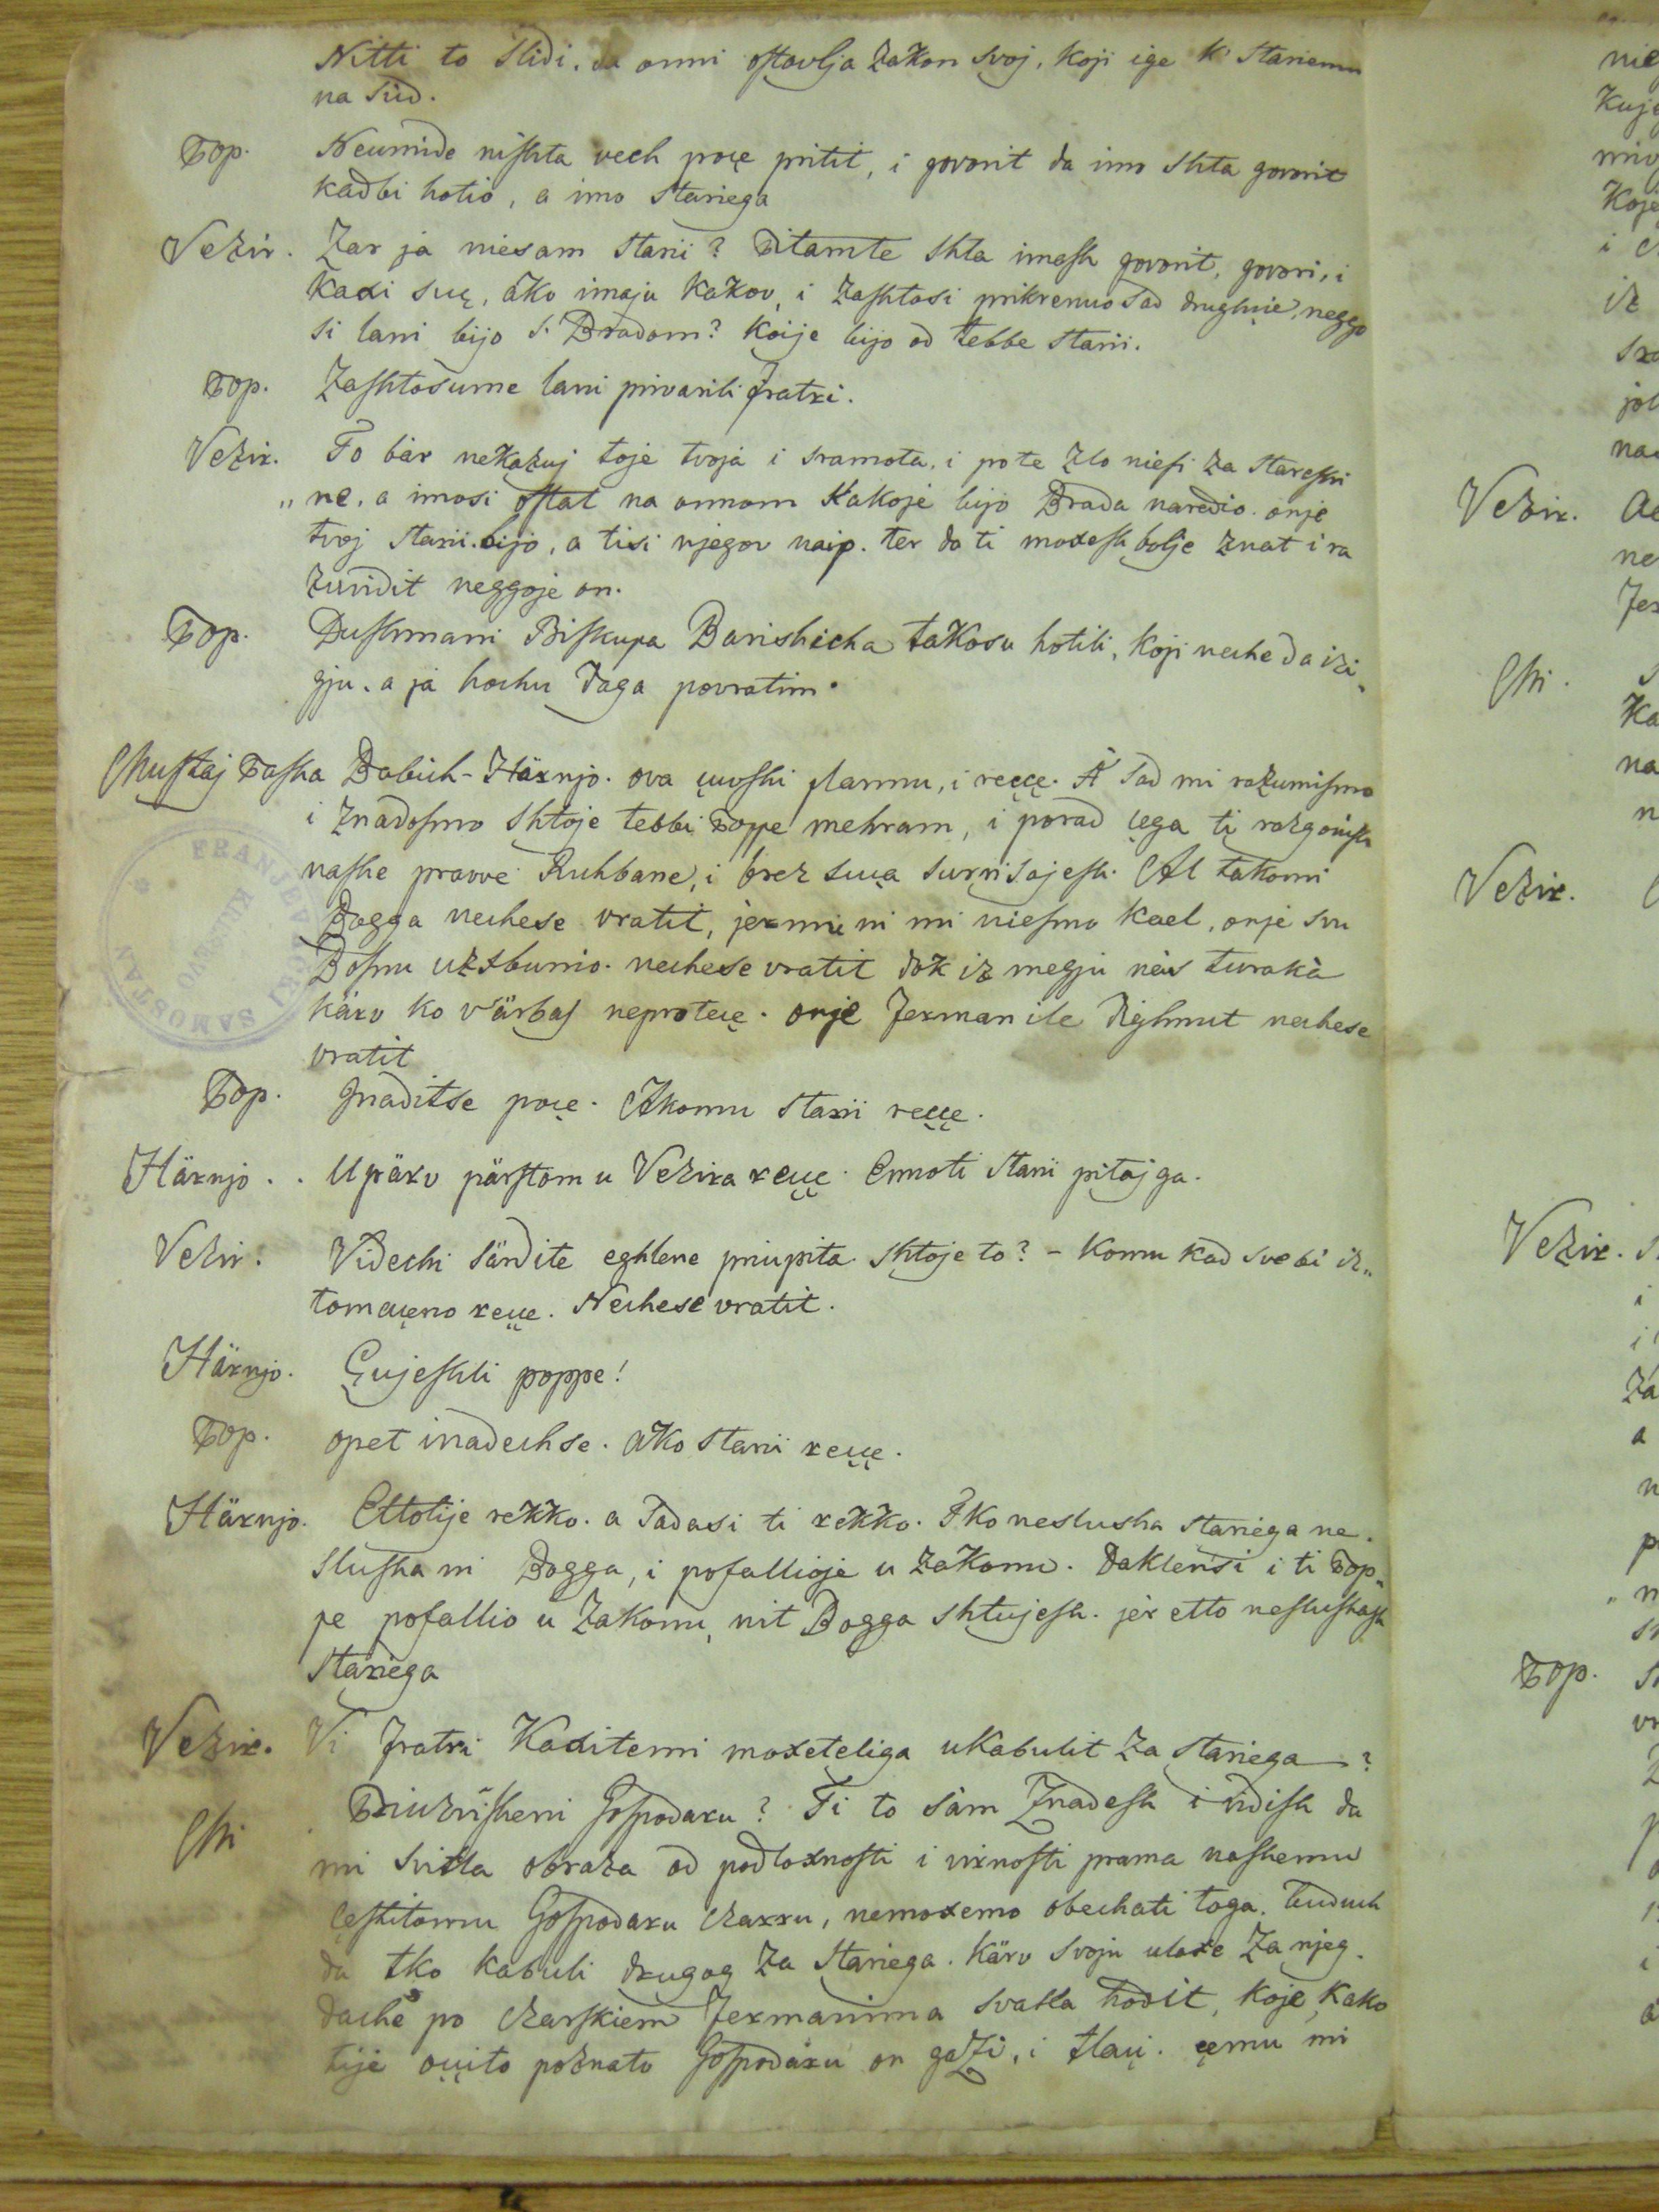 Nitti to slidi, da onni ostavlja Zakon svoj, koji ige k' Stariemu
na sud.
Pop. Neumide nishta vech poçe pritit, i govorit da imo shta govorit
kadbi hotio, a imo Stariega
Vezir. Zar ja niesam Starii? Pitamte shta imash govorit, govori, i
Kaxi suç, ako imaju kakov, i zashtosi prikrenuo sad drughçie, neggo
si lani bijo s' Bradom? koije bijo od tebbe starii.
Pop. Zashtosume lani privarili Fratri.
Vezir. To bar nekazuj toje tvoja i sramota, i po te zlo niesi za stareshi
„ne, a imosi ostat na onnom kakoje bijo Brada naredio. onje
tvoj Starii bijo, a tisi njegov naip. ter da ti moxesh bolje znat i ra
zuvidit neggoje on.
Pop. Dushmani Biskupa Barishicha takosu hotili, koji neche da izi„
gju. a ja hochu daga povratim.
Mustaj Pasha Babich-Härnjo. ova çuvshi plannu, i reççe. A sad mi razumismo
i znadosmo shtoje tebbi Poppe mehram, i porad çega ti razgonish
nashe pravve Ruhbane, i brez suça surgisajesh. Al takomi
Bogga nechese vratit, jermu ni mi niesmo kael, onje svu
Bosnu uzbunio. nechese vratit dok iz megju näs turakà
kärv ko Värbas neproteçe. onje Ferman ile dighnut nechese
vratit
Pop. Inaditse poçe. Akomu starii reççe.
Härnjo. Upärv pärstom u Vezira reççe. Ennoti starii pitajga.
Vezir. Videchi särdite eghlene priupita shtoje to? - Komu kad sve bi iz„
tomaçeno reççe. Nechese vratit.
Härnjo. Çujeshli poppe!
Pop. opet inadechse. ako starii reççe.
Härnjo. Ettotije rekko. a sadasi ti rekko. Tko neslusha stariega ne
slusha ni Bogga, i pofallioje u zakonu. daklensi i ti Pop„
pe pofallio u Zakonu, nit Bogga shtujesh. jer etto neslushash
Stariega
Vezir. Vi Fratri Kaxitemi moxeteliga ukabulit za stariega?
Mi Priuzvisheni Gospodaru? Ti to sàm znadesh i vidish da
mi svitla obraza od podloxnosti i virnosti prama nashemu
çestitomu Gospodaru Czarru, nemoxemo obechati toga. buduch
da tko kabuli drugog za Stariega. kärv svoju uloxe za njeg.
dache po Czarskiem Fermanima svatla hodit, koje, kako
tije oççito poznato Gospodaru on gazi, i tlaçi. çemu mi
Vezir.
Mi.
Vezir.
Vezir.
Pop.
FRANJEVAČKI
SAMOSTAN